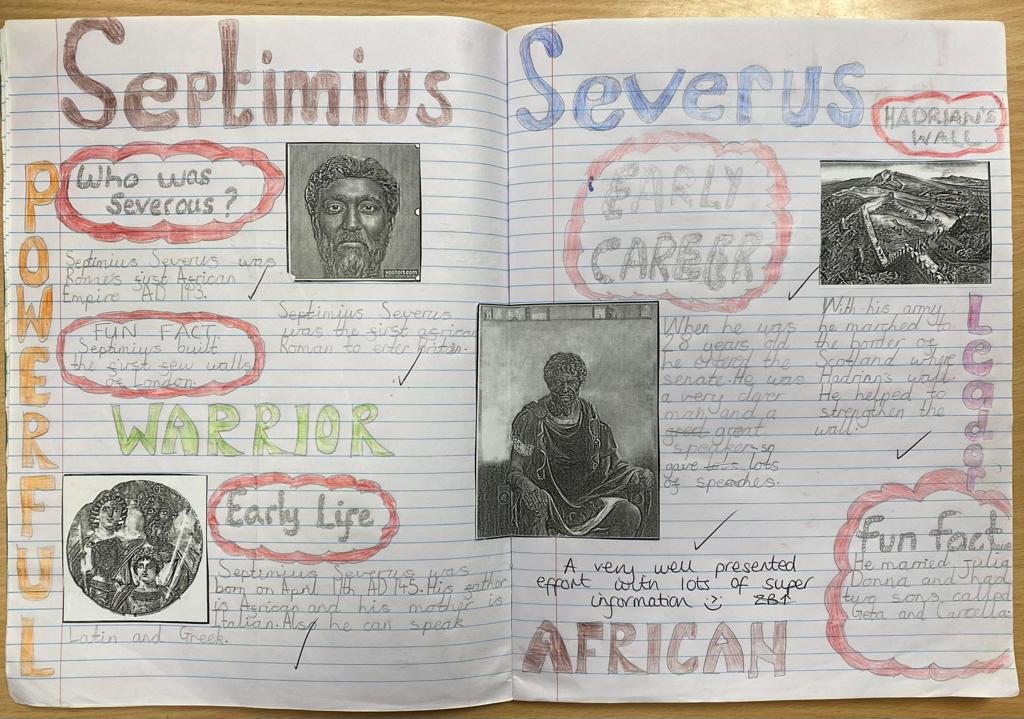 Septimius
Severus
POWERFUL
Who was
Severous?
voshart.com
Septimius Severus was
Rome's first African
Empire AD 145.
FUN FACT
Septimius built
the first few walls
of London.
Septimius Severus
was the first african
Roman to enter Britain.
WARRIOR
Early Life
Septimius Severus was
born on April 11th AD 145. His father
is African and his mother is
Italian. Also he can speak
Latin and Greek.
EARLY
CAREER
When he was
28 years old
he entered the
senate. He was
a very clever
man and a
gred great
speaker so
gave lots
of speaches.
HADRIAN'S
WALL
With his army
he marched to
the border of
Scotland where
Hadrian's wall.
He helped to
strengthen the
wall.
Leader
Fun fact
He married Julia
Donna and had
two sons called
Geta and Carcella.
A very well presented
effort with lots of super
information
AFRICAN